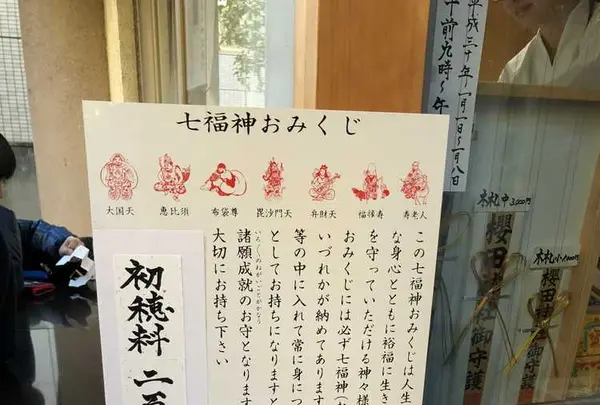 七福神おみくじ
大国天
恵比須
布袋尊
毘沙門天
弁財天
福禄寿
寿老人
この七福神おみくじは人生
な身心とともに裕福に生き
を守っていただける神々様
おみくじには必ず七福神(
いづれかが納めてあります
等の中に入れて常に身につ
としてお持ちになりますと
いろくのねがいごとがかなう
諸願成就のお守となります
大切にお持ち下さい
初穂料 二百
平成三十年一月一日~一月八日
午前九時~午
木札中 3,000円
櫻田神社御守護
木札小
櫻田神社御守護